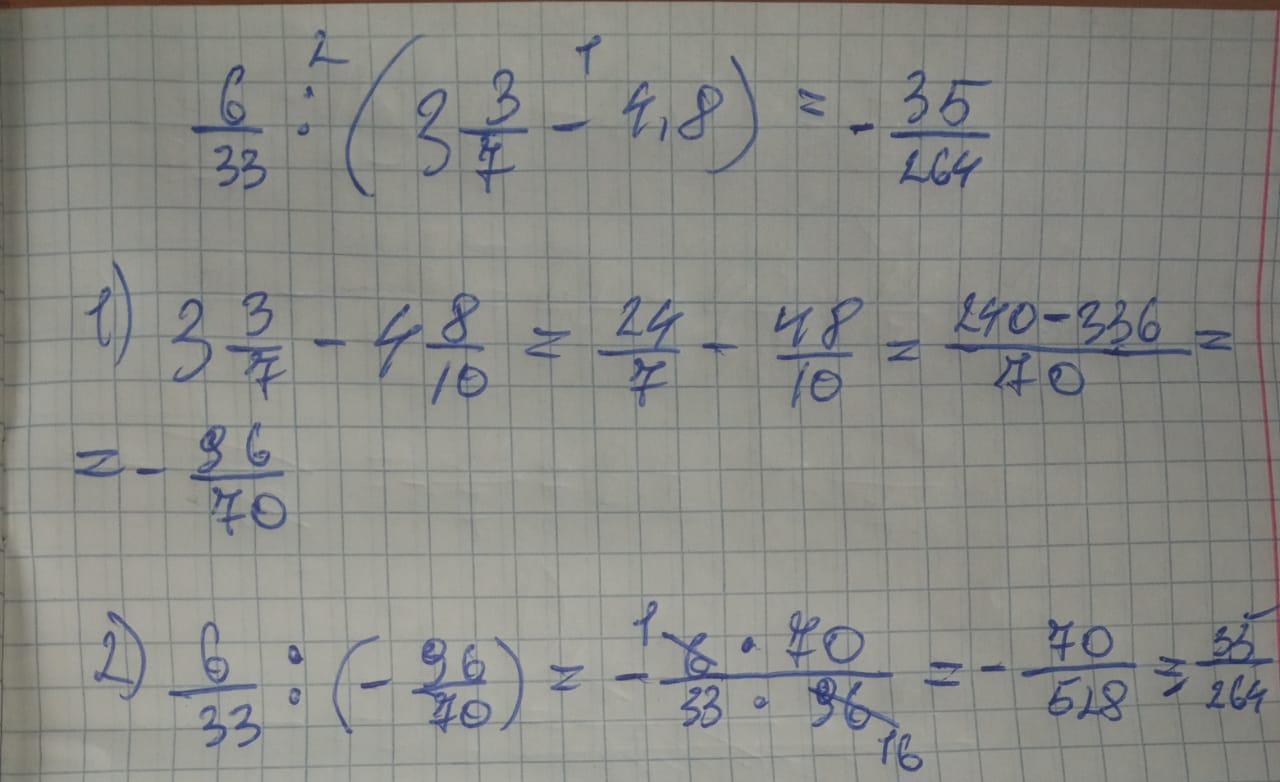 6/33 :² (3 3/7 -¹ 4,8) = - 35/264
1) 3 3/7 - 4 8/10 = 24/7 - 48/10 = 240-336/70 =
= - 96/70
2) 6/33 : (- 96/70) = - 1 6 · 70/33 · 96 16 = - 70/528 = - 35/264